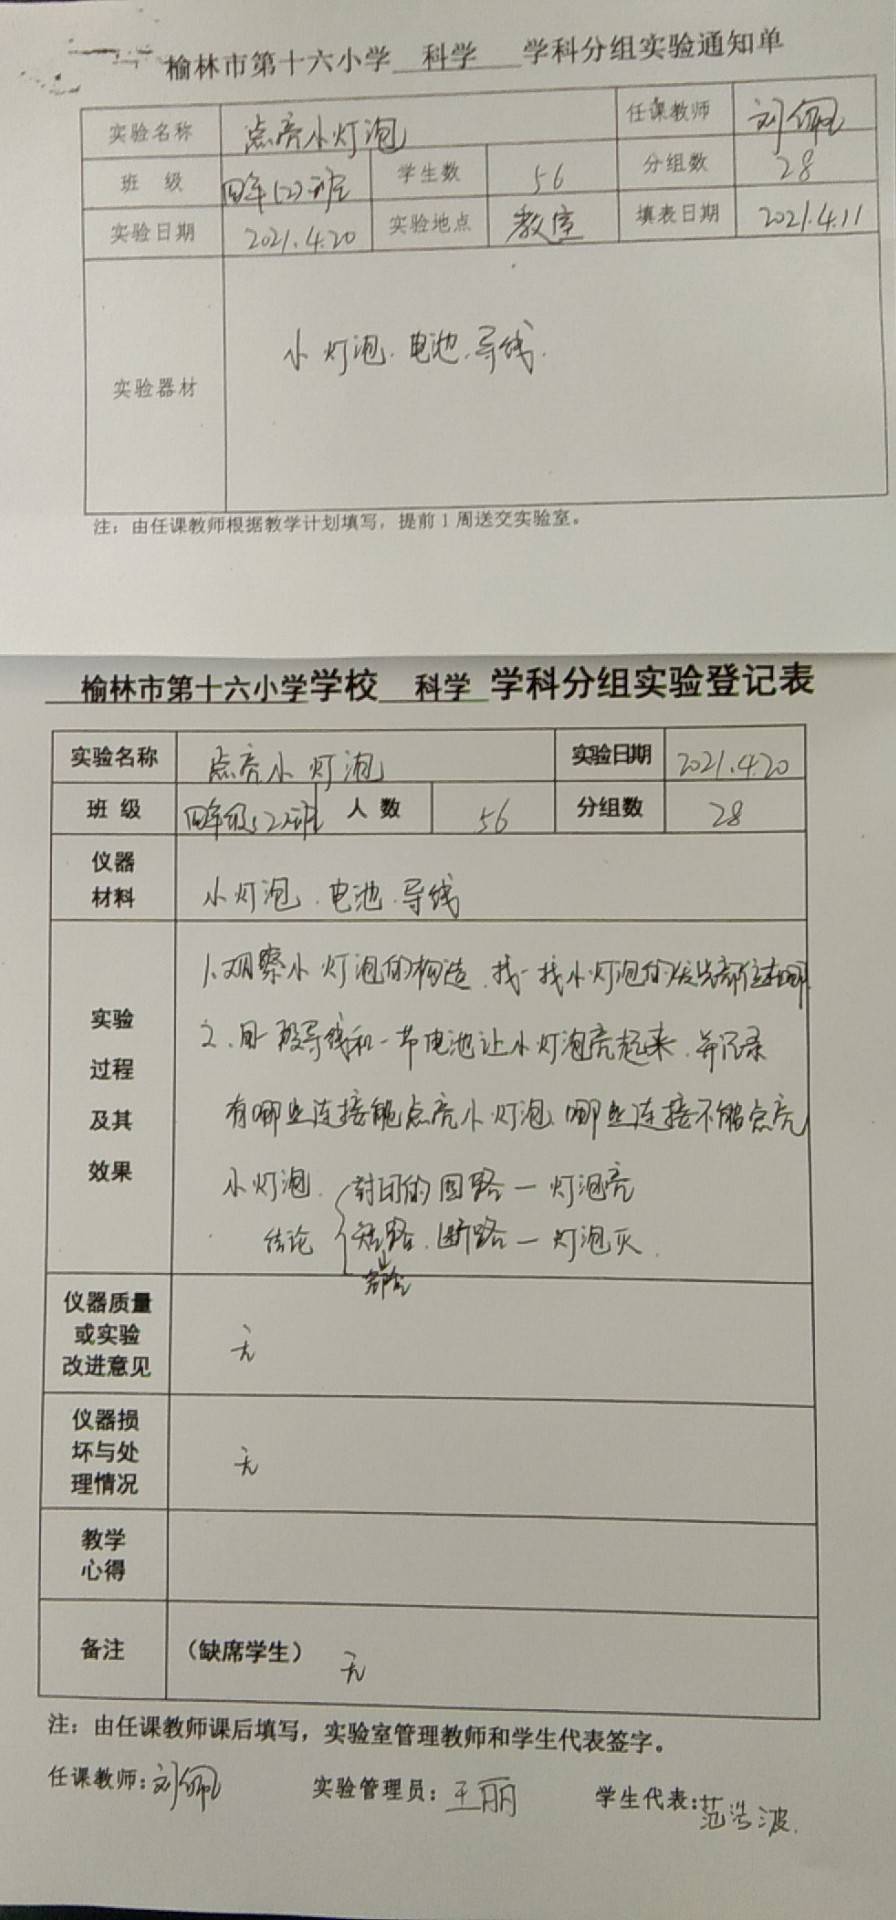 榆林市第十六小学 科学 学科分组实验通知单
实验名称 点亮小灯泡 任课教师 刘佩
班 级 四年(2)班 学生数 56 分组数 28
实验日期 2021.4.20 实验地点 教室 填表日期 2021.4.11
实验器材 小灯泡.电池.导线.
注：由任课教师根据教学计划填写，提前1周送交实验室。
榆林市第十六小学学校 科学 学科分组实验登记表
实验名称 点亮小灯泡 实验日期 2021.4.20
班 级 四年级(2)班 人 数 56 分组数 28
仪器
材料
小灯泡.电池.导线
实验
过程
及其
效果
1.观察小灯泡的构造.找一找小灯泡的发光部位在哪
2.用一段导线和一节电池让小灯泡亮起来.并记录
有哪些连接能点亮小灯泡.哪些连接不能点亮
小灯泡. 封闭的回路一灯泡亮
结论 短路.断路一灯泡灭.
仪器质量
或实验
改进意见
无
仪器损
坏与处
理情况
无
教学
心得
备注 （缺席学生） 无
注：由任课教师课后填写，实验室管理教师和学生代表签字。
任课教师：刘佩 实验管理员：王丽 学生代表：范浩波.